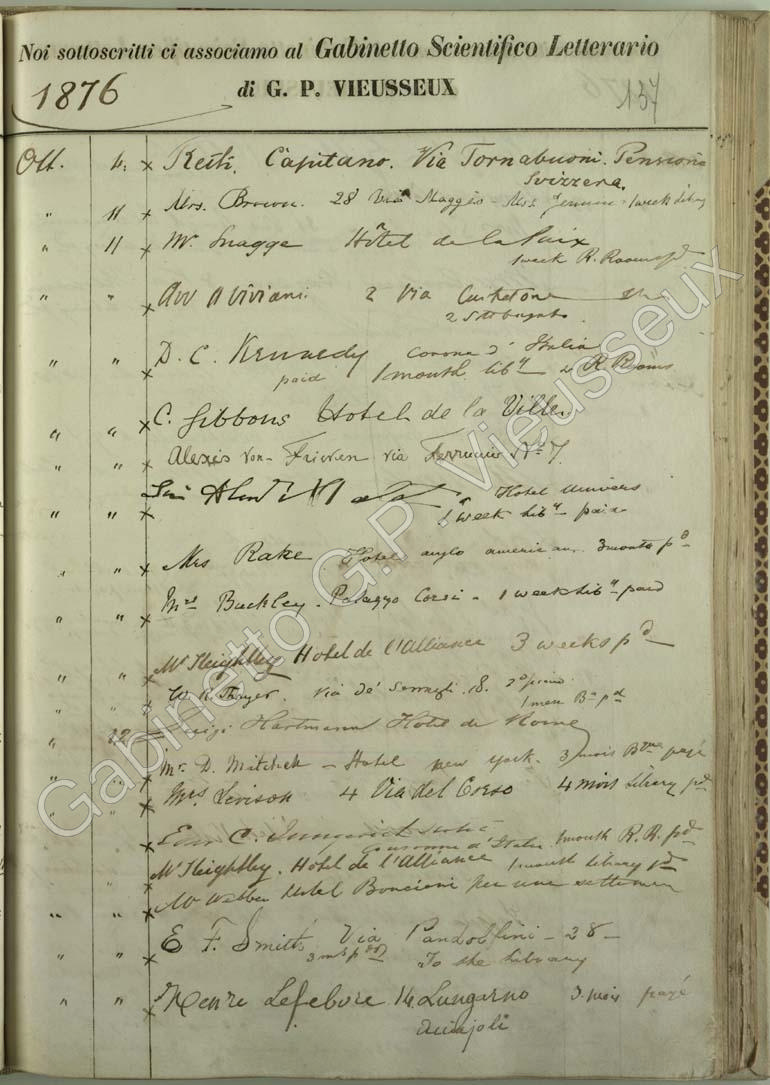 Noi sottoscritti ci associamo al Gabinetto Scientifico Letterario
di G. P. VIEUSSEUX
1876 137
Ott. Capitano. Via Tornabuoni. Pensione
Svizzera.
" 11 x Mrs. Brown. 28 Via Maggio - 1 week library
" 11 x Mr Snagge Hôtel de la Paix
1 week R. Rooms pd
" " x Avv Viviani 2 Via
" " x D. C. Kennedy Corona d' Italia
paid 1 month liby & R Rooms
" " x C. Gibbons Hotel de la Ville.
" " x Alexis von Fricken via No 7.
" " x Hotel Univers
1 week liby paid
" " x Mrs Rake Hotel anglo american. 3 months pd
" " x Mrs Buckley. Palazzo Corsi - 1 week liby paid
" " x Mr Keightley Hotel de l'Alliance 3 weeks pd
" " x W. R. Thayer. Via de' Serragli. 8. 2o piano
1 mese Ba pd
" 12 Luigi Hartmann Hotel de Rome
" " x Mr. D. Mitchell - Hotel new york. 3 mois Bque payé
x Mrs Levison 4 Via del Corso 4 mois Library pd
x C. Couronne d'Italie. 1 month R. R. pd
x Mr Keightley. Hotel de l'Alliance 1 month library pd
" " x Mr Webber Hotel Boncioni per une
" " x E F. Smith Via Pandolfini - 28 -
To the library
" " x Henri Lefebvre 14 Lungarno 3 mois payé
Acciajoli
Gabinetto G.P. Vieusseux